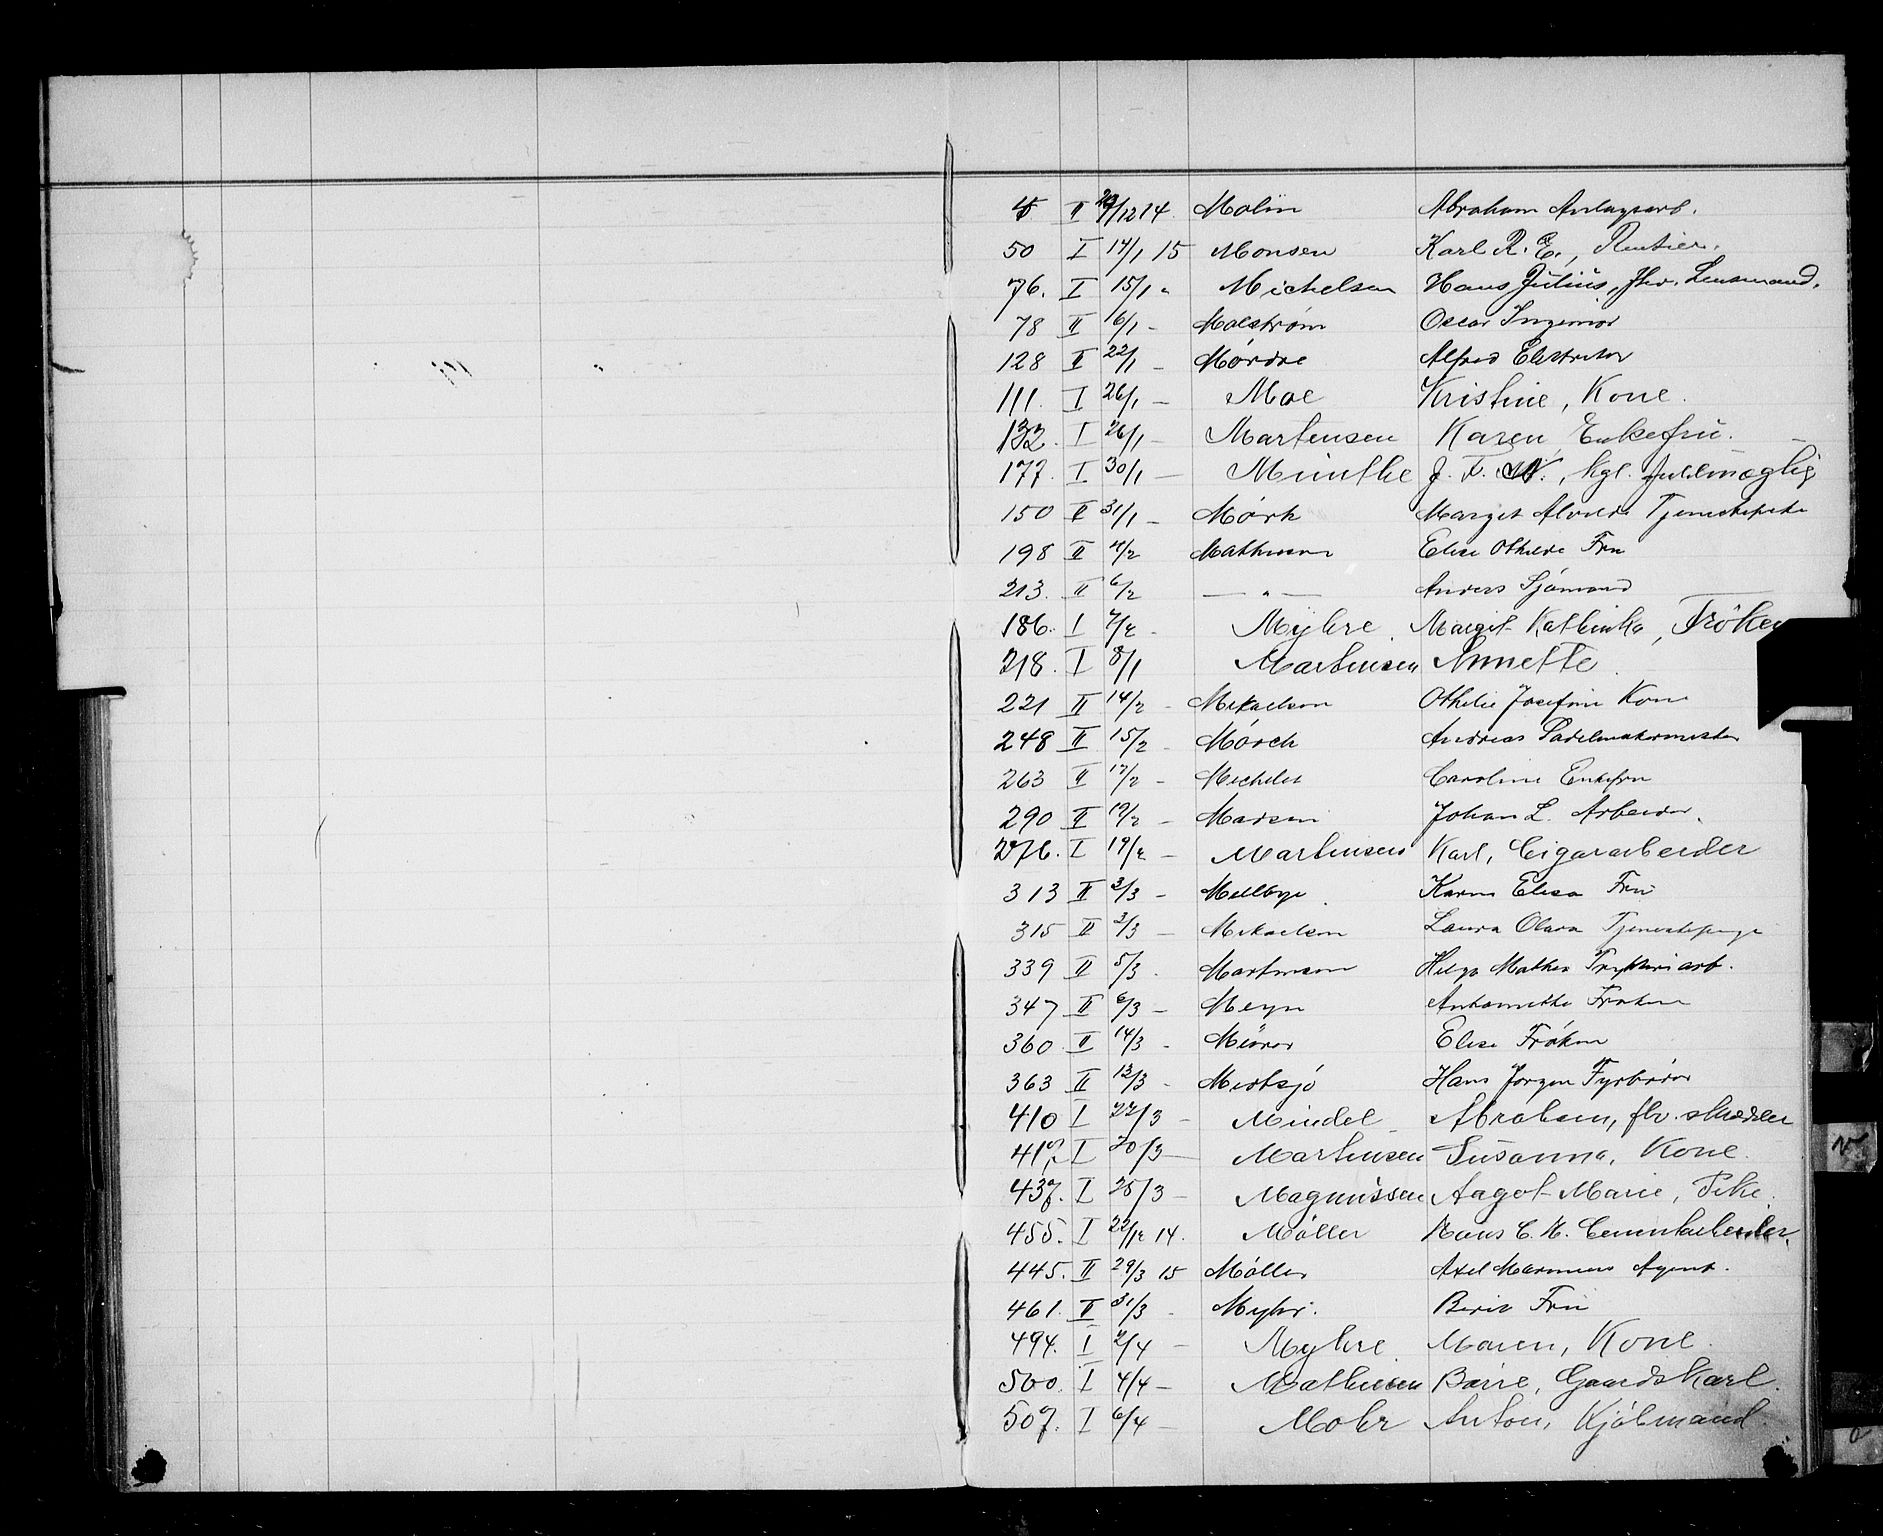 5 II 29/12 14. Molin Abraham Anlægsarb.
50 I 14/1 15 Monsen Karl R. E., Rentier.
76. I 15/1 " Michelsen Hans Julius, fhv. Lensmand.
78 II 6/1 - Malstrøm Oscar Ingeniør
128 II 22/1 - Mørdre Alfred
111. I 26/1 - Moe Kristine, Kone.
132. I 26/1 - Martensen Karen, Enkefru.
177. I 30/1 - Munthe J. F. W., kgl. fuldmægtig
150 II 31/1 - Mørk Margit Alvilde Tjenestepike
198 II 4/2 Mathisen Elise Othilde Fru
213. II 6/2 — " — Anders Sjömand
186. I 7/2 - Myhre Margit Kathinka, Frøken
218. I 8/1 Martinsen Annette
221 II 14/2 - Mikaelsen Othilie Josefine Kone
248 II 15/2 - Mörch Andreas Sadelmakermester
263 II 17/2 - Michelet Caroline Enkefru
290 II 19/2 - Madsen Johan L. Arbeider.
276. I 19/2 - Martinsen Karl, Cigararbeider
313 II 3/3 - Mellbye Karen Elisa Fru
315 II 3/3 - Mikaelsen Laura Olava
339 II 5/3 - Martinsen Helga Mathea Trykkeriarb.
347 II 6/3 - Meyn Antoinette Frøken
360 II 14/3 - Elise Frøken
363 II 13/3 - Midtsjø Hans Jørgen Fyrbøter
410 I 22/3 - Mindel Abraham, fhv. skrædder
417. I 20/3 - Martinsen Susanna, Kone.
437. I 25/3 - Magnussen Aagot Marie, Pike.
455. I 22/12 14. Møller Hans C. M. Cementarbeider.
445. II 29/3 15 Møller Axel Agent.
461. II 31/3 - Myhre. Berit Fru
494. I 2/4 - Myhre Maren, Kone.
500. I 4/4 - Mathisen Børre, Gaardskarl.
507. I 6/4 - Mohr Anton, Kjøbmand.